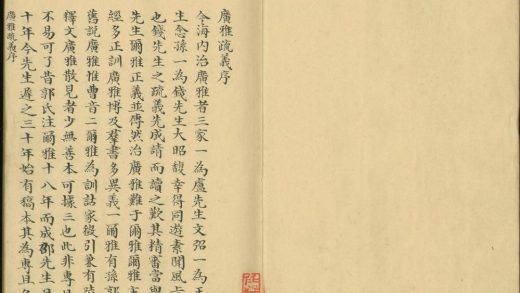 廣雅疏義序
今海内治廣雅者三家一為盧先生文弨一為王
生念孫一為錢先生大昭馥幸得同遊素聞風上
也錢先生之疏義先成請而讀之歎其精審當與
先生爾雅正義並傳然治廣雅難于爾雅爾雅主
經多正訓廣雅博及羣書多異義一爾雅有孫郭
舊說廣雅惟曹音二爾雅為訓詁家徵引兼有陸
釋文廣雅散見者少無善本可據三也此非專且
不易可了昔郭氏注爾雅十八年而成邵先生
十年今先生遲之三十年始有稿本其為專且久
廣雅疏義序